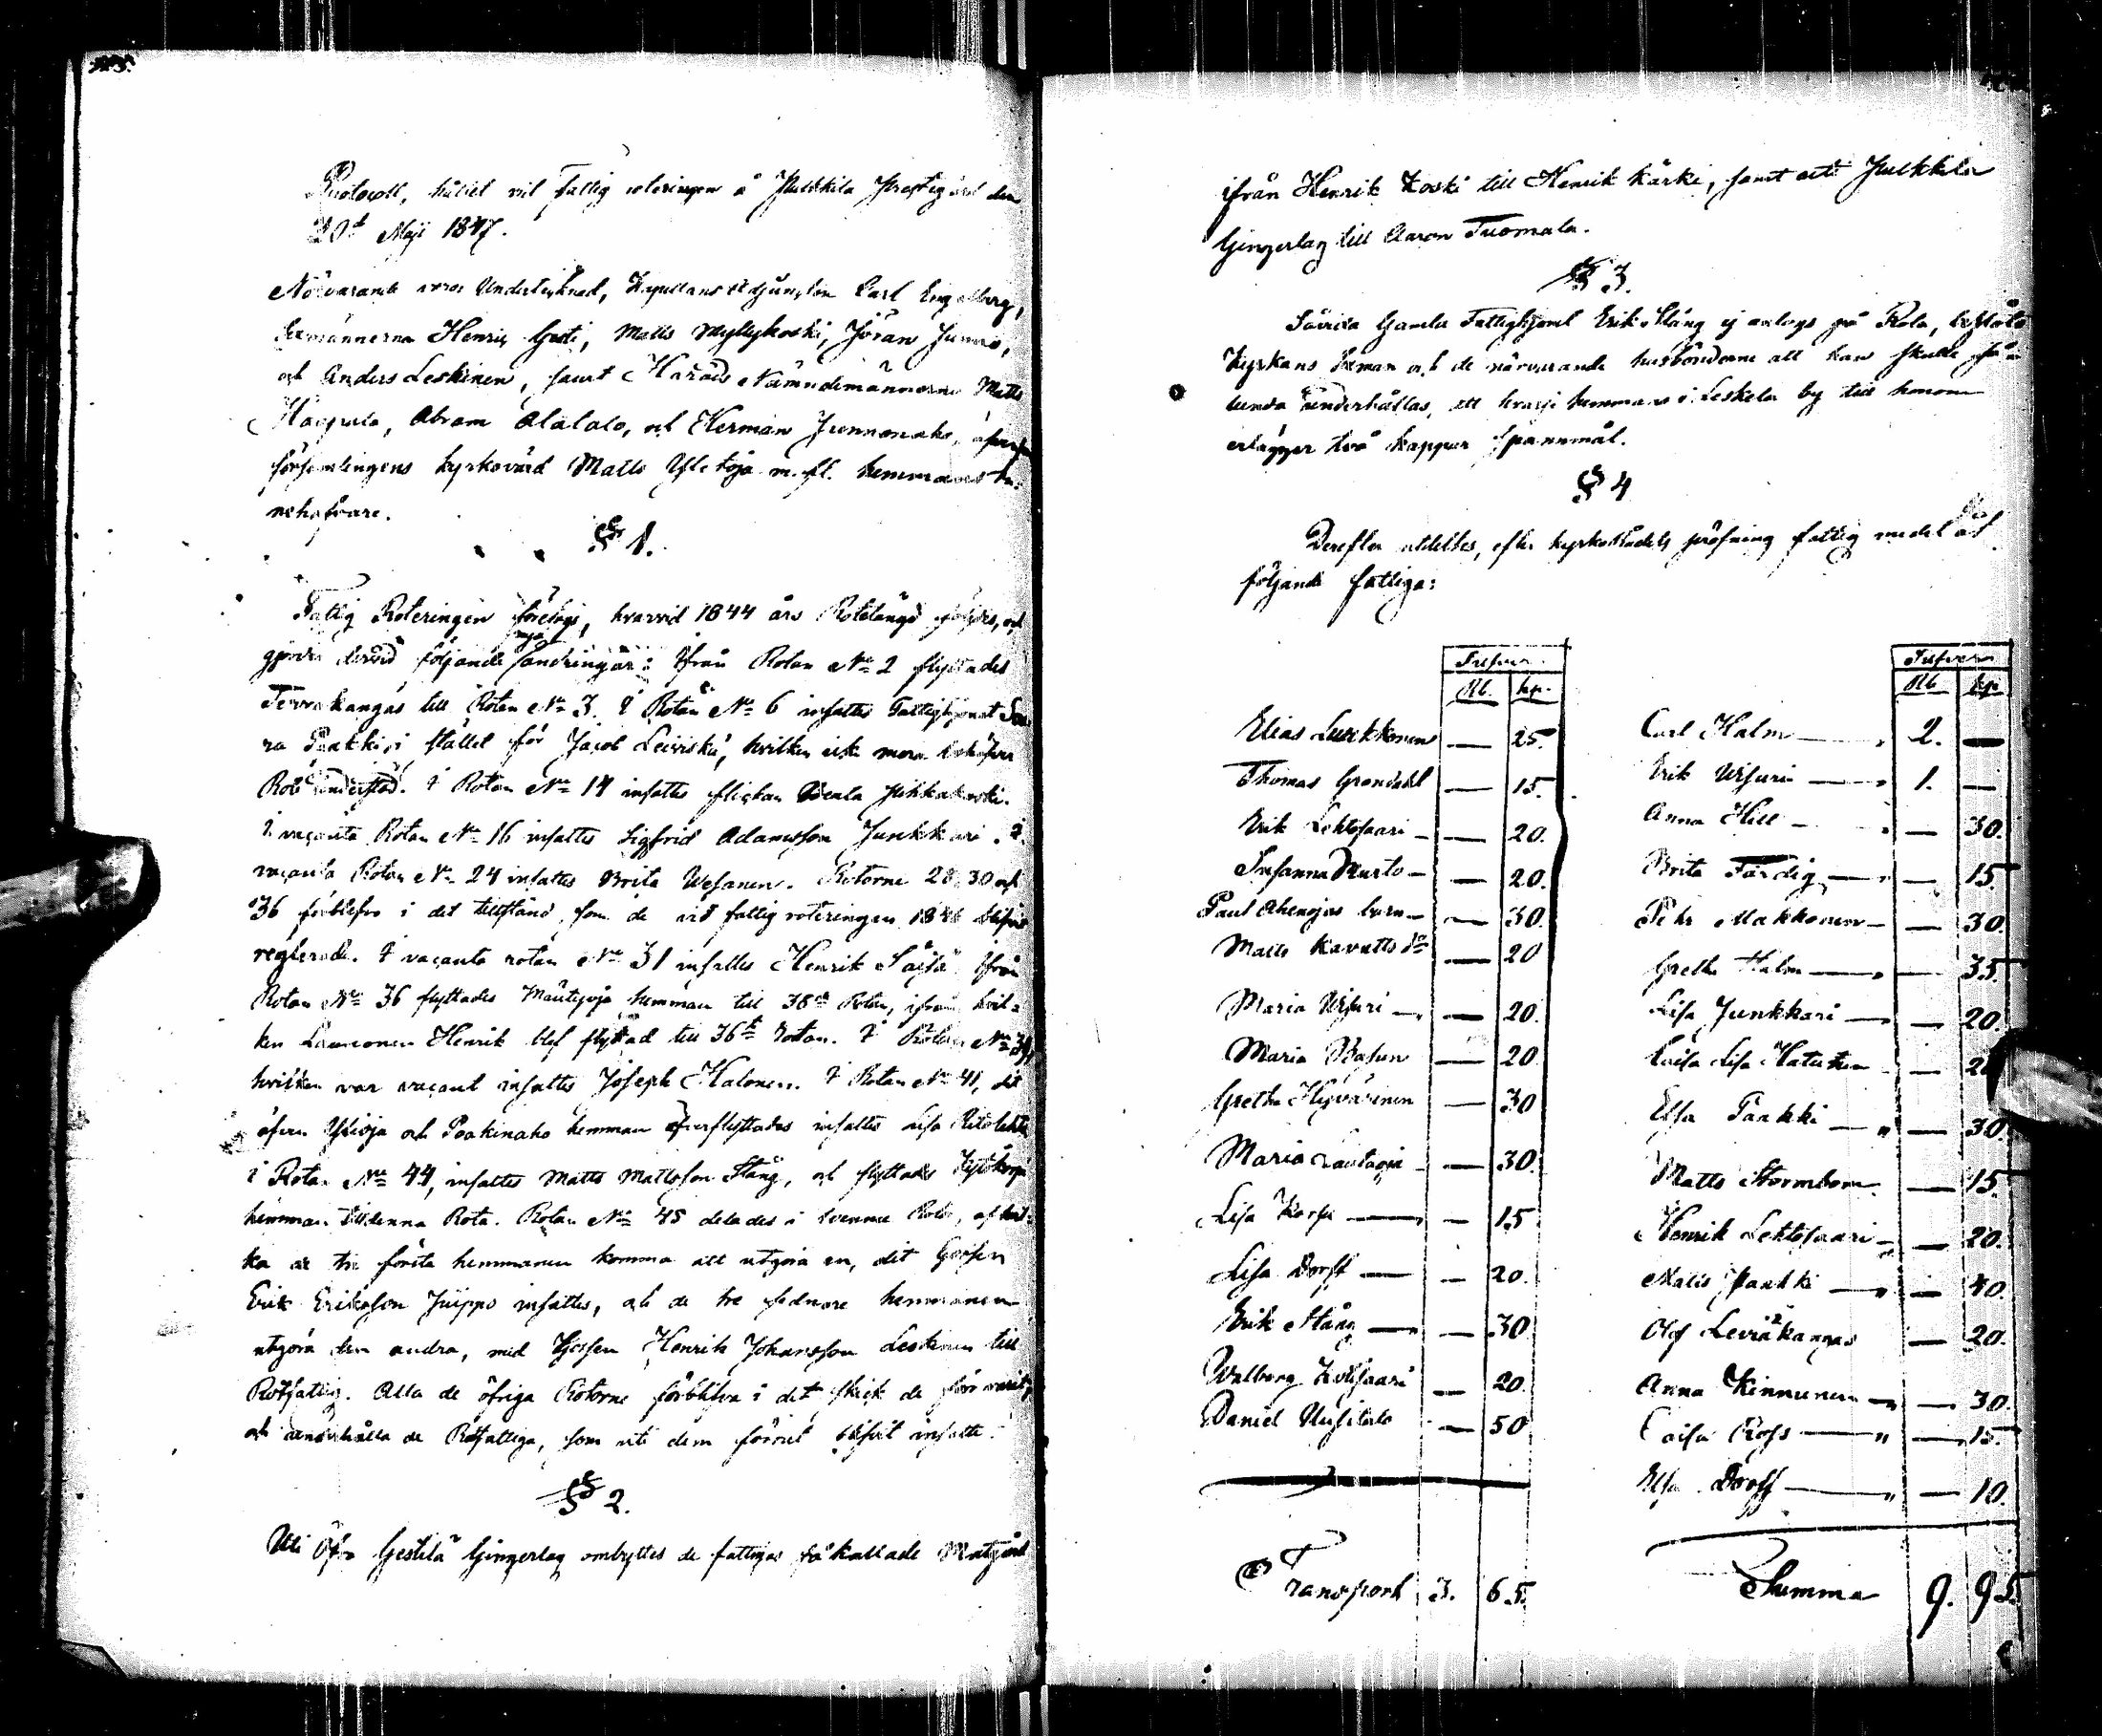 Protocoll, hållit vid Fattig roteringen å Pulkkila Prestegård den
20de Maji 1847.
Närvarande voro Undertecknad, Kapellans Adjuncten Carl Engelberg,
Sexmännerna Henric Gesti, Matts Myllykoski, Jöran Junno,
och Anders Leskinen, samt Härads Nämndemännerne Matts
Haapala, Abram Alatalo, och Herman Junnonaho,
församlingens kyrkovärd Matts Yletoja m. fl. hemmans in-
nehafvare.
§ 1.
Fattig Roteringen företogs, hvarvid 1844 års Rotelängd följdes, och
gjordes dervid följande nya ändringar: Ifrån Rotan No 2 flyttades
Tervakangas till Rotan No 3. I Rotan No 6 insattes Fattighjonet Sa-
ra Paakki, i stället för Jacob Leiviskä, hvilken icke mera behöfver
Rote understöd. I Rotan No 14 insattes flickan
I vacanta Rotan No 16 insattes Sigfrid Adamsson Junkkari. I
vacanta Rotan No 24 insattes Brita Wesanen. Rotorne 28, 30 och
36 förblefvo i det tillstånd, som de vid fattig roteringen blifvit
reglerade. I vacanta rotan No 31 insattes Henrik Ifrån
Rotan No 36 flyttades hemman till 38de Rotan, ifrån hvil-
ken Henrik blef flyttad till 36te rotan. I Rotan No
hvilken var vacant insattes Joseph Halonen. I Rotan No 41, dit
äfven Ylioja och Paakinaho hemman öfverflyttades insattes Lisa
I Rotan No 44, insattes Matts Mattsson Stång, och flyttades
hemman till denna Rota. Rotan No 45 delades i tvenne Rotor, af hvil-
ka de tre första hemmanen komma att utgöra en, dit Gossen
Erik Eriksson Juippo insattes, och de tre sednare hemmanen
utgöra den andra, med Gossen Henrik Johansson Leskinen till
Rotfattig. Alla de öfriga Rotorne förblifva i det skick de förr varit,
och underhålla de Rotfattiga, som uti dem förrut blifvit insatte.
§ 2.
Uti Öfre Gestilä Gingerlag ombyttes de fattigas så kallade Matgård
ifrån Henrik Koski till Henrik Kärki, samt uti Pulkkila
Gingerlag till Aaron Tuomala.
§ 3.
Såvida Gamla Fattighjonet Erik Stång ej antogs på Rota, beslöto
Kyrkans Sexman och de närvarande husbönderne att han skulle så-
lunda underhållas, att hvarje hemman i Leskelä by till honom
erlägger två kappar Spannmål.
§ 4
Derefter utdeltes, efter kyrko Rådets pröfning fattig medel åt
följande fattiga:
Silfver
Rb. kp.
Elias Luukkonen — 25.
Thomas Grandahl — 15.
Erik Lehtosaari — 20.
Susanna Murto — 20.
Paul Ahenojas barn — 30.
Matts Kavatts do — 20
Maria Wisuri — 20.
Maria — 20
Gretha Hyvärinen — 30
Maria Rautaoja — 30.
Lisa Korpi — 15
Lisa Dorff — 20.
Erik Stång — 30
Walborg — 20.
Daniel Uusitalo — 50
Transport 3. 65.
Silfver
Rb. kp
Carl Halm 2. —
Erik Wisuri 1. —
Anna Hill — 30.
Brita Färdig — 15
Pehr Makkonen — 30.
Gretha Halm — 35.
Lisa Junkkari — 20
Caisa Lisa Hatunen — 20
Elsa Paakki — 30.
Matts Stormbom — 15.
Henrik Lehtosaari — 20.
Matts Paakki — 40.
Olof Leviäkangas — 20.
Anna Kinnunen — 30.
Caisa Ross — 15.
Elsa Dorff — 10.
Summa 9. 95.